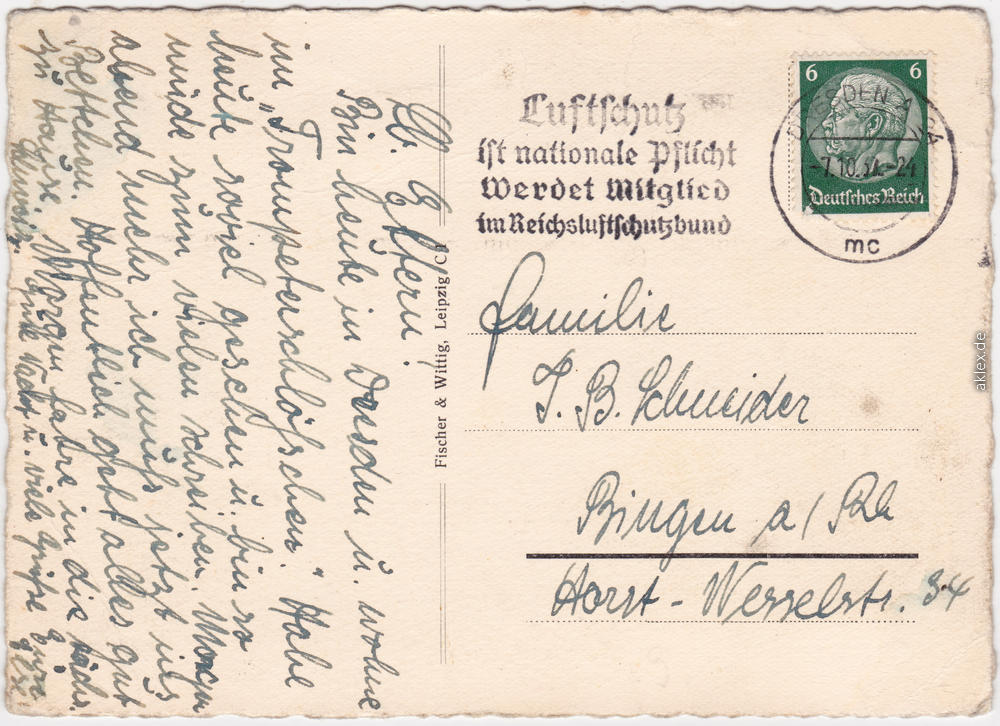 Lb. Eltern!
Bin heute in Dresden u. wohne
im „Trompeterschlößchen“. Habe
heute soviel gesehen u. bin so
müde zum vielen schreiben. Morgen
abend mehr ich muß jetzt ins
Bettchen. Hoffentlich geht alles gut
zu Hause. Morgen fahre in die sächs.
Gute Nacht u. viele Grüße
Fischer & Wittig, Leipzig C1
Luftschutz
ist nationale Pflicht
Werdet Mitglied
im Reichsluftschutzbund
DRESDEN A 24
-7.10. -24
mc
6 6
Deutsches Reich
Familie
J. B. Schneider
Bingen a/Rh
Horst-Wesselstr. 34
aklex.de